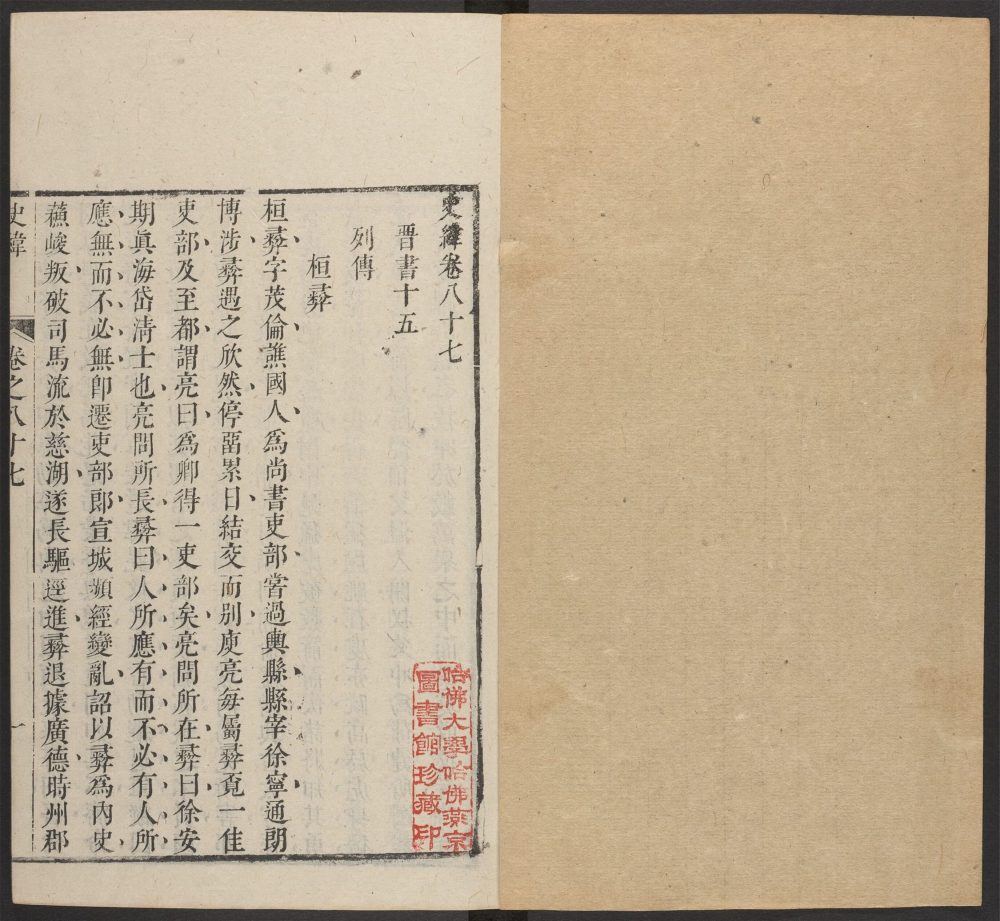 史緯卷八十七
晉書十五
列傳
桓彝
桓彝字茂倫譙國人爲尚書吏部嘗過輿縣縣宰徐寧通朗
博涉彝遇之欣然停畱累日結交而別庾亮每屬彝覓一佳
吏部及至都謂亮曰爲卿得一吏部矣亮問所在彝曰徐安
期眞海岱淸士也亮問所長彝曰人所應有而不必有人所
應無而不必無卽遷吏部郞宣城頻經變亂詔以彝爲內史
蘓峻叛破司馬流於慈湖遂長驅逕進彝退據廣德時州郡
史緯
卷之八十七
一
哈佛大學哈佛燕京
圖書館珍藏印